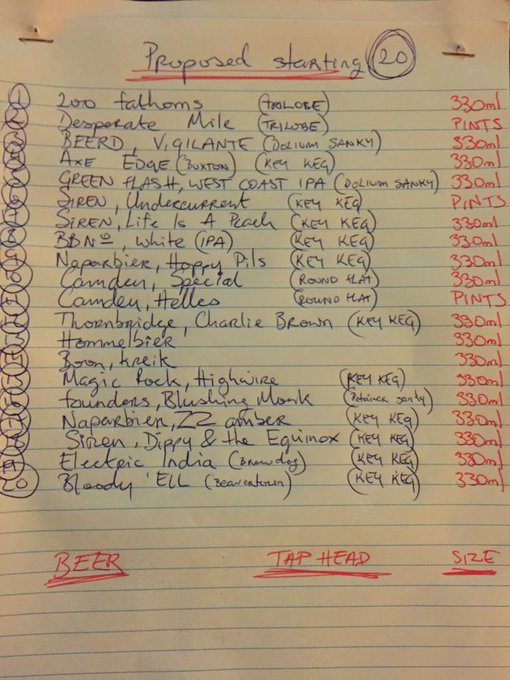 Proposed starting 20
1 200 fathoms (TRILOBE) 330ml
2 Desperate Mile (TRILOBE) PINTS
3 BEERD, VIGILANTE (DOLIUM SANKY) 330ml
4 AXE EDGE (BUXTON) (KEY KEG) 330ml
5 GREEN FLASH, WEST COAST IPA (DOLIUM SANKY) 330ml
6 SIREN, Undercurrent (KEY KEG) PINTS
7 SIREN, Life Is A Peach (KEY KEG) 330ml
8 BBNº, White (IPA) (KEY KEG) 330ml
9 Naparbier, Hoppy Pils (KEY KEG) 330ml
10 Camden, Special (ROUND FLAT) 330ml
11 Camden, Helles (ROUND FLAT) PINTS
12 Thornbridge, Charlie Brown (KEY KEG) 330ml
13 Hommelbier 330ml
14 Boon, Kreik 330ml
15 Magic Rock, Highwire (KEY KEG) 330ml
16 founders, Blushing Monk sanky) 330ml
17 Naparbier, ZZ amber (KEY KEG) 330ml
18 Siren, Dippy & the Equinox (KEY KEG) 330ml
19 Electric India (Brewdog) (KEY KEG) 330ml
20 Bloody 'Ell (Beavertown) (KEY KEG) 330ml
BEER TAP HEAD SIZE